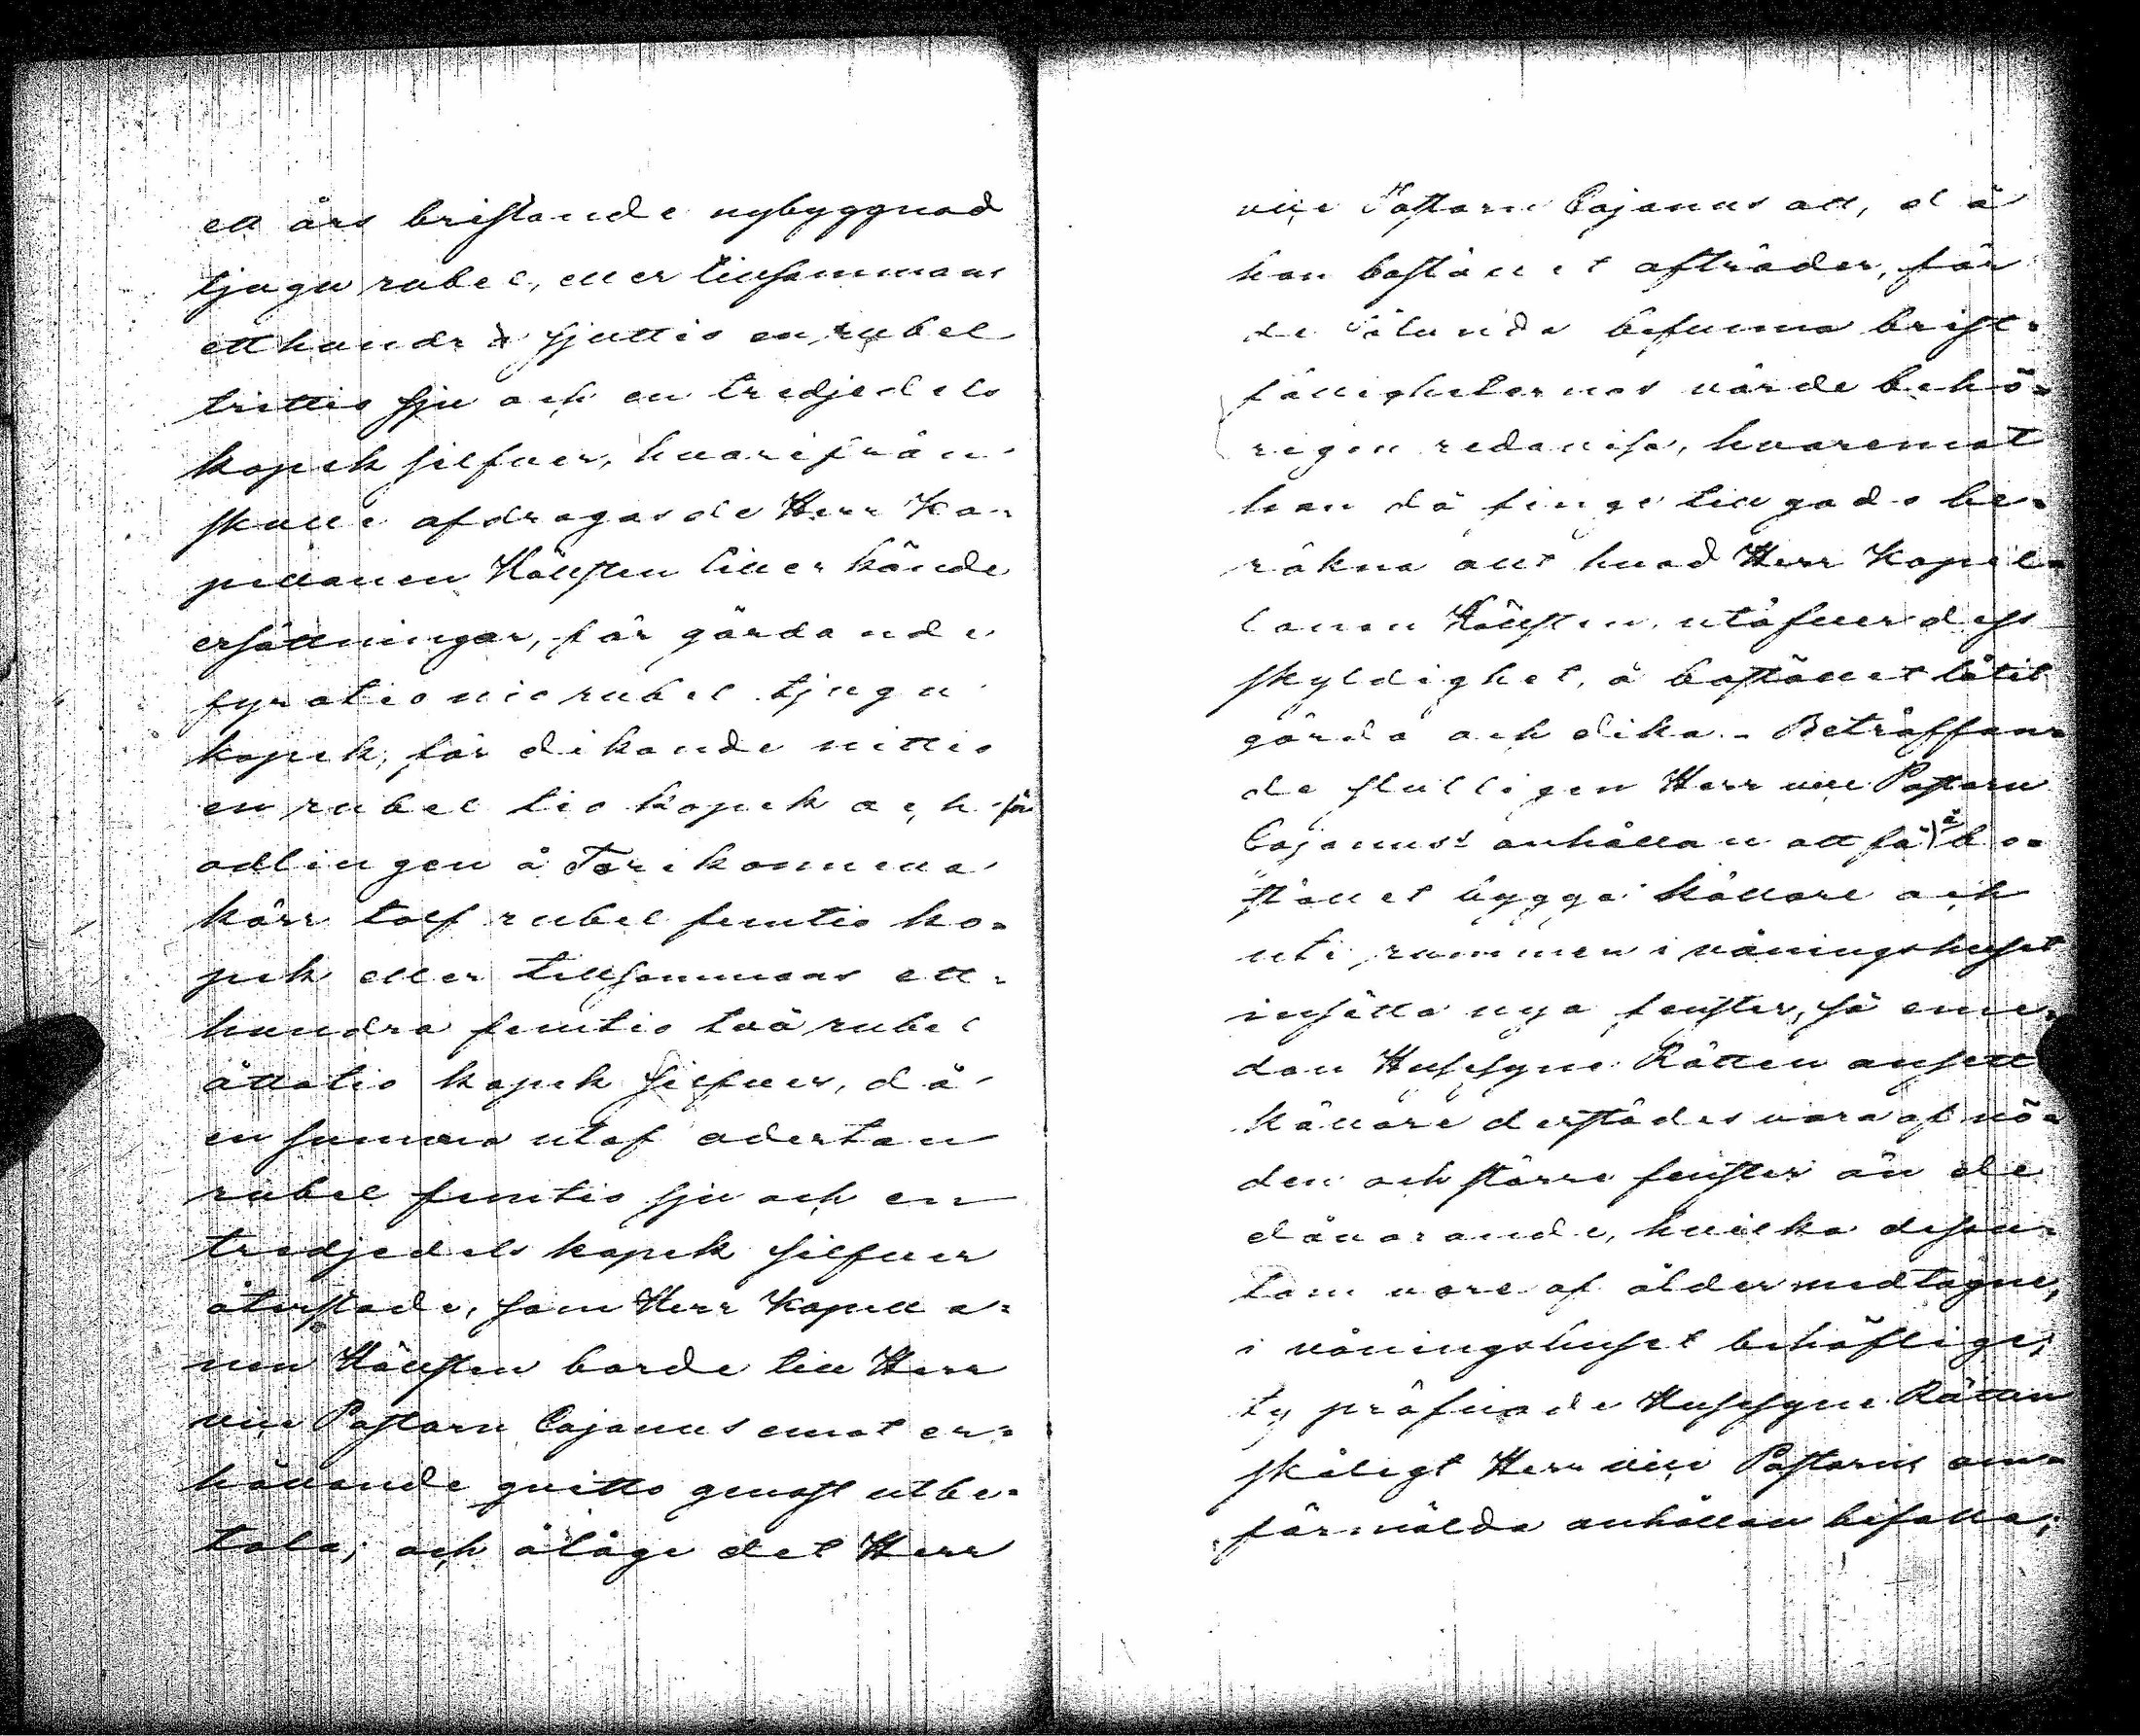 ett års bristande nybyggnad
tjugu rubel, eller tillsammans
etthundra sjuttio en rubel
trettio sju och en tredjedels
kopek silfver, hvarifrån
skulle afdragas de Herr Ka-
pellanen Hällsten tillerkände
ersättningar, för gärdande
fyratio nio rubel tjugu
kopek, för dikande nittio
en rubel tio kopek och för
odlingen å Torikonmena
kärr tolf rubel femtio ko-
pek eller tillsammans ett-
hundra femtio två rubel
åttatio kopek silfver, då
en summa utaf aderton
rubel femtio sju och en
tredjedels kopek silfver
återstode, som Herr Kapella-
nen Hällsten borde till Herr
vice Pastorn Cajanus emot er-
hållande qvitto genast utbe-
tala; och ålåge det Herr
vice Pastorn Cajanus att, då
han bostället afträder, för
de sålunda befunna brist-
fälligheternas värde behö-
rigen redovisa, hvaremot
han då finge tillgodo be-
räkna allt hvad Herr Kapel-
lanen Hällsten, utöfver dess
skyldighet, å bostället låtit
gärda och dika. - Beträffan-
de slutligen Herr vice Pastorn
Cajanus's anhållan att få å bo-
stället bygga källare och
uti rummen i våningshuset
insätta nya fenster, så eme-
dan Husesyne Rätten ansett
källare derstädes vara af nö-
den och större fenster än de
dåvarande, hvilka desu-
tom vore af ålder medtagne,
i våningshuset behöflige;
ty pröfvade Husesyne Rätten
skäligt Herr vice Pastorns om-
förmälda anhållan bifalla;